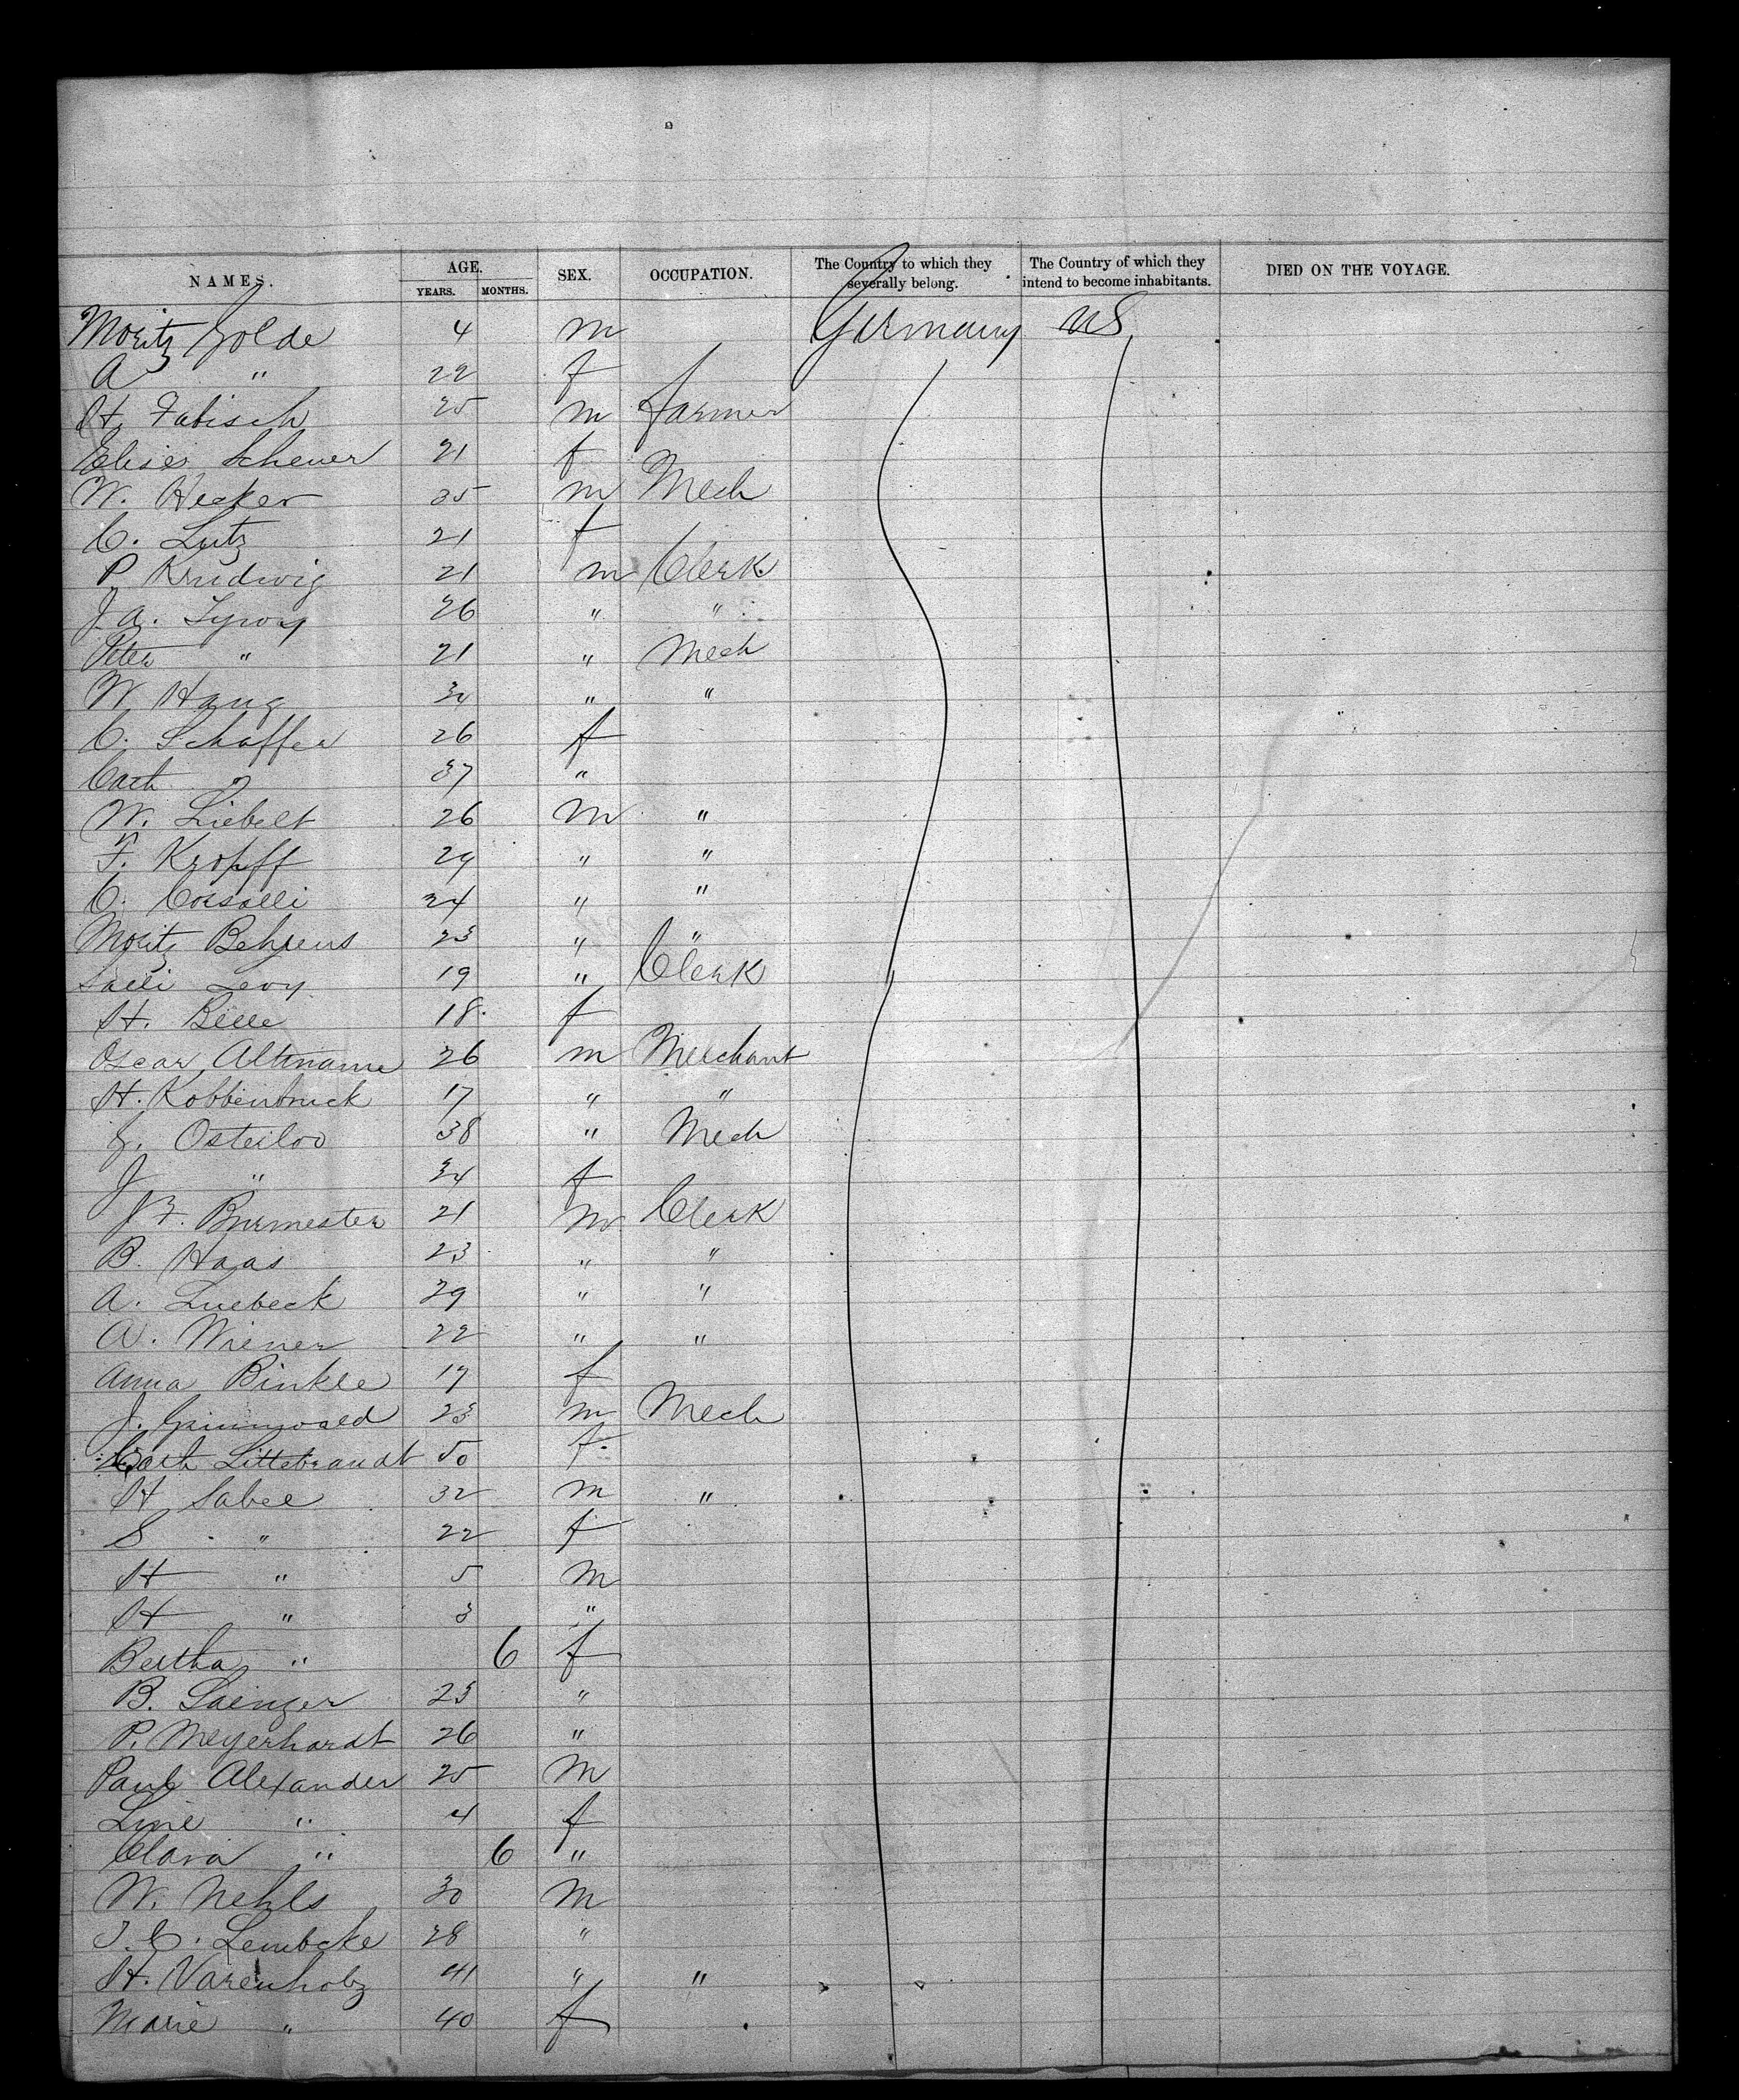 NAMES. AGE. SEX. OCCUPATION. The Country to which they severally belong. The Country of which they intend to become inhabitants. DIED ON THE VOYAGE.
YEARS. MONTHS.
Moritz Golde 4 m Germany US
A " 22 f
H. Fabisch 25 m farmer
Elise Scheuer 21 f
W. Hecker 35 m Mech
C. Lutz 21 f
P. Krudwig 21 m Clerk
J. A. 26 " "
Peter " 21 " Mech
W. Haug 34 " "
C. Schaffer 26 f
Cath " 37 "
W. Liebelt 26 m "
F. Kropff 29 " "
C. Corsalli 24 " "
Moritz Behrens 23 " "
Salli Levy 19 " Clerk
H. Belle 18 f
Oscar Altmann 26 m Merchant
H. Kobbenbruck 17 " "
G. Osterloo 38 " Mech
J " 34 f
J F. Burmester 21 m Clerk
B. Haas 23 " "
A. Luebeck 29 " "
A. Wiener 22 " "
Anna Binkle 17 f
J. Grunwald 23 m Mech
Cath Littebrandt 50 f
H. Sabel 32 m "
S " 22 f
H " 5 m
H " 3 "
Bertha " 6 f
B. Saenger 23 "
P. Meyerhardt 26 "
Paul Alexander 25 m
Line " 4 f
Clara " 6 "
W. Nehls 30 m
J. C. Lembcke 28 "
H. Varenholz 41 " "
Marie " 40 f